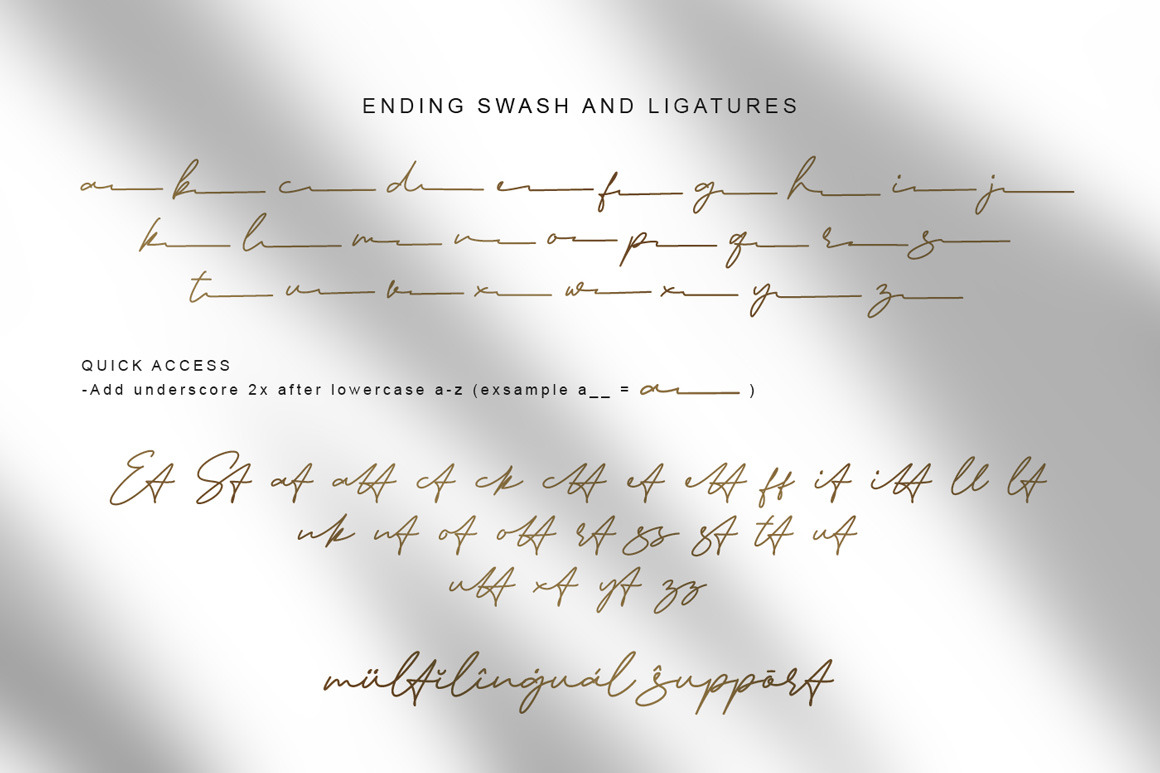 ENDING SWASH AND LIGATURES
a b c d e f g h i j
k l m n o p q r s
t u v x w x y z
QUICK ACCESS
-Add underscore 2x after lowercase a-z (exsample a__ = a )
Et St at att ct ck ctt et ett ff it itt ll lt
nk nt ot ott rt ss st tt ut
utt xt yt zz
mültĭlînġuál ŝuppōrt